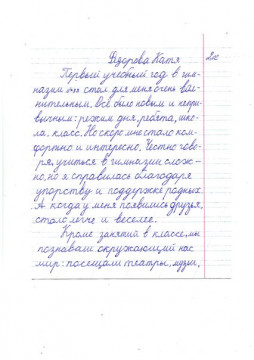 Фёдорова Катя 2в
Первый учебный год в гим-
назии стал для меня очень вол-
нительным. Всё было новым и непри-
вычным: режим дня, ребята, шко-
ла, класс. Но скоро мне стало ком-
фортно и интересно. Честно гово-
ря, учиться в гимназии слож-
но, но я справилась благодаря
упорству и поддержке родных.
А когда у меня появились друзья,
стало легче и веселее.
Кроме занятий в классе, мы
познавали окружающий нас
мир: посещали театры, музеи,